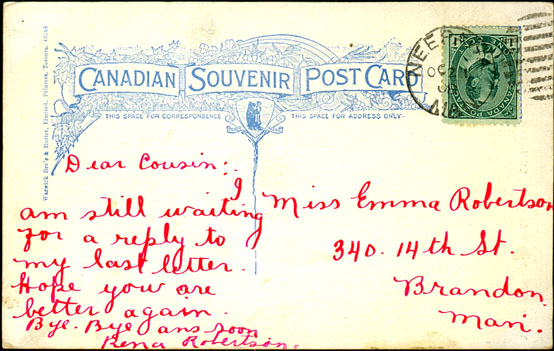 Warwick Bro's & Rutter, Limited, Printers, Toronto.
CANADIAN SOUVENIR POST CARD
THIS SPACE FOR CORRESPONDENCE
THIS SPACE FOR ADDRESS ONLY
Dear Cousin:.
I
am still waiting
for a reply to
my last letter.
Hope you are
better again.
Bye. Bye ans soon
Rena Robertson.
Miss Emma Robertson
340. 14th St.
Brandon
Man.
NEEP
OC